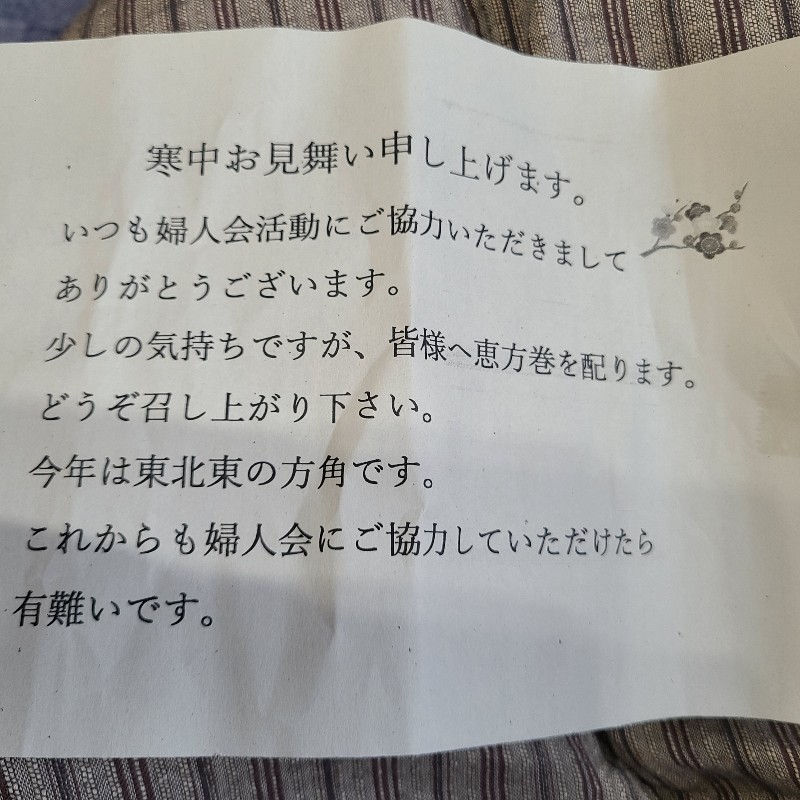 寒中お見舞い申し上げます。
いつも婦人会活動にご協力いただきまして
ありがとうございます。
少しの気持ちですが、皆様へ恵方巻を配ります。
どうぞ召し上がり下さい。
今年は東北東の方角です。
これからも婦人会にご協力していただけたら
有難いです。